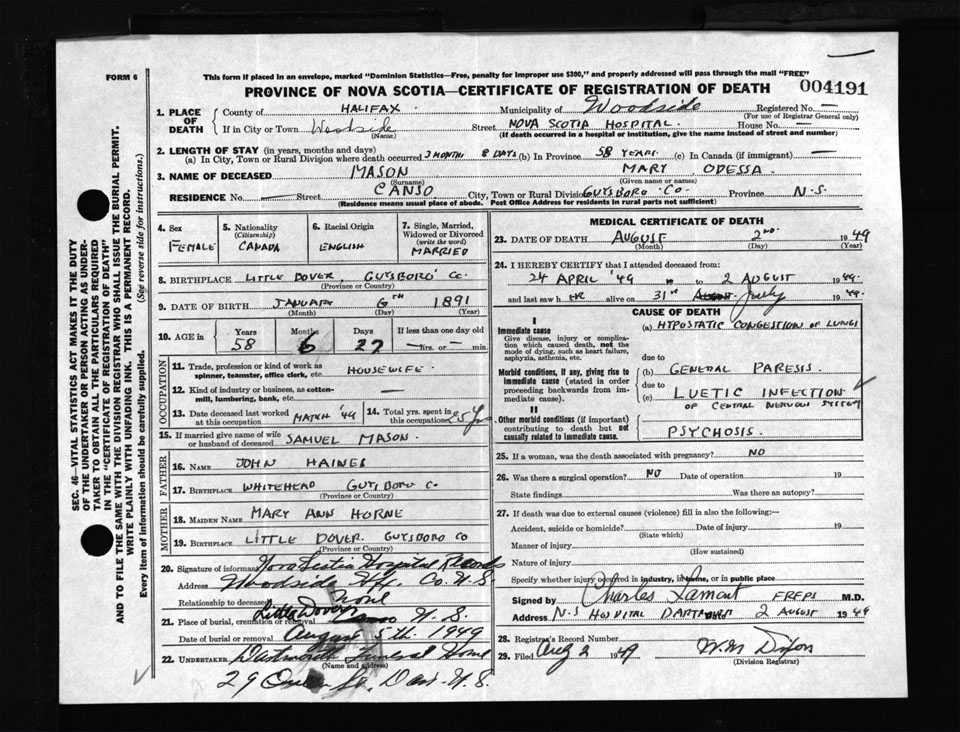 FORM 6
This form if placed in an envelope, marked "Dominion Statistics—Free, penalty for improper use $300," and properly addressed will pass through the mail "FREE"
PROVINCE OF NOVA SCOTIA—CERTIFICATE OF REGISTRATION OF DEATH 004191
1. PLACE OF DEATH
County of HALIFAX Municipality of Woodside Registered No. —
(For use of Registrar General only)
If in City or Town Woodside Street NOVA SCOTIA HOSPITAL. House No. —
(Name) (If death occurred in a hospital or institution, give the name instead of street and number)
2. LENGTH OF STAY (in years, months and days)
(a) In City, Town or Rural Division where death occurred 3 MONTHS 8 DAYS (b) In Province 58 YEARS. (c) In Canada (if immigrant) —
3. NAME OF DECEASED MASON MARY ODESSA.
(Surname) (Given name or names)
RESIDENCE No. — Street CANSO City, Town or Rural Division GUYSBORO CO. Province N.S.
(Residence means usual place of abode. Post Office Address for residents in rural parts not sufficient)
4. Sex FEMALE
5. Nationality (Citizenship) CANADA
6. Racial Origin ENGLISH
7. Single, Married, Widowed or Divorced (write the word) MARRIED
8. BIRTHPLACE LITTLE DOVER, GUYSBORO CO.
(Province or Country)
9. DATE OF BIRTH JANUARY 6TH 1891
(Month) (Day) (Year)
10. AGE in Years Months Days If less than one day old
58 6 27 — hrs. or — min.
OCCUPATION
11. Trade, profession or kind of work as spinner, teamster, office clerk, etc. HOUSEWIFE.
12. Kind of industry or business, as cotton-mill, lumbering, bank, etc. —
13. Date deceased last worked at this occupation MARCH '49
14. Total yrs. spent in this occupation 25 Yr
15. If married give name of wife or husband of deceased SAMUEL MASON.
FATHER
16. NAME JOHN HAINES
17. BIRTHPLACE WHITEHEAD GUYSBORO CO.
(Province or Country)
MOTHER
18. MAIDEN NAME MARY ANN HORNE
19. BIRTHPLACE LITTLE DOVER. GUYSBORO CO
(Province or Country)
20. Signature of informant Nova Scotia Hospital Records
Address Woodside Hfx. Co. N.S.
Relationship to deceased None
21. Place of burial, cremation or removal Little Dover N.S.
Date of burial or removal August 5th. 1949
22. UNDERTAKER Dartmouth Funeral Home
(Name and address)
29 Queen St. Dart. N.S.
MEDICAL CERTIFICATE OF DEATH
23. DATE OF DEATH AUGUST 2ND 1949
(Month) (Day) (Year)
24. I HEREBY CERTIFY that I attended deceased from:
24 APRIL '49 to 2 AUGUST 1949.
and last saw HR alive on 31st July 1949.
CAUSE OF DEATH
I
Immediate cause
Give disease, injury or complication which caused death, not the mode of dying, such as heart failure, asphyxia, asthenia, etc.
(a) HYPOSTATIC CONGESTION OF LUNGS
due to
Morbid conditions, if any, giving rise to immediate cause (stated in order proceeding backwards from immediate cause).
(b) GENERAL PARESIS.
due to
(c) LUETIC INFECTION OF CENTRAL NERVOUS SYSTEM
II
Other morbid conditions (if important) contributing to death but not causally related to immediate cause.
PSYCHOSIS.
25. If a woman, was the death associated with pregnancy? NO
26. Was there a surgical operation? NO Date of operation 19
State findings Was there an autopsy?
27. If death was due to external causes (violence) fill in also the following:—
Accident, suicide or homicide? Date of injury 19
(State which)
Manner of injury
(How sustained)
Nature of injury
Specify whether injury occurred in industry, in home, or in public place
Signed by Charles Lamont FRFPS M.D.
Address N.S HOSPITAL DARTMOUTH 2 AUGUST 1949
28. Registrar's Record Number
29. Filed Aug 2 1949 W.M. Dixon
(Division Registrar)
SEC. 46—VITAL STATISTICS ACT MAKES IT THE DUTY OF THE UNDERTAKER OR PERSON ACTING AS UNDERTAKER TO OBTAIN ALL THE PARTICULARS REQUIRED IN THE "CERTIFICATE OF REGISTRATION OF DEATH" AND TO FILE THE SAME WITH THE DIVISION REGISTRAR WHO SHALL ISSUE THE BURIAL PERMIT.
WRITE PLAINLY WITH UNFADING INK. THIS IS A PERMANENT RECORD.
Every item of information should be carefully supplied. (See reverse side for instructions.)